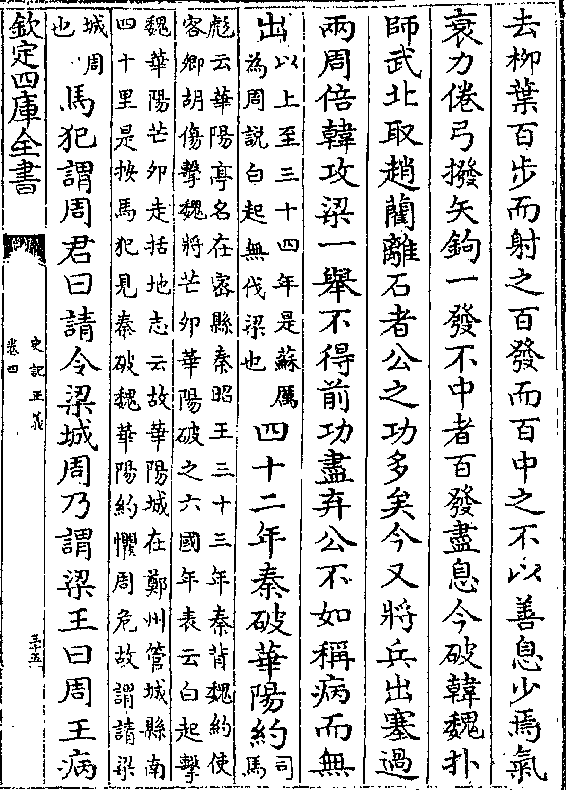 去柳葉百步而射之百發而百中之不以善息少焉氣
衰力倦弓撥矢鉤一發不中者百發盡息今破韓魏扑
師武北取趙藺離石者公之功多矣今又將兵出塞過
兩周倍韓攻梁一舉不得前功盡弃公不如稱病而無
出以上至三十四年是蘇厲
為周說白起無伐梁也
四十二年秦破華陽約司
馬
彪云華陽亭名在密縣秦昭王三十三年秦背魏約使
客卿胡傷擊魏將芒夘華陽破之六國年表云白起擊
魏華陽芒夘走括地志云故華陽城在鄭州管城縣南
四十里是按馬犯見秦破魏華陽約懼周危故謂請梁
城周
也
馬犯謂周君曰請令梁城周乃謂梁王曰周王病
欽定四庫全書
史記正義
卷四
三十五